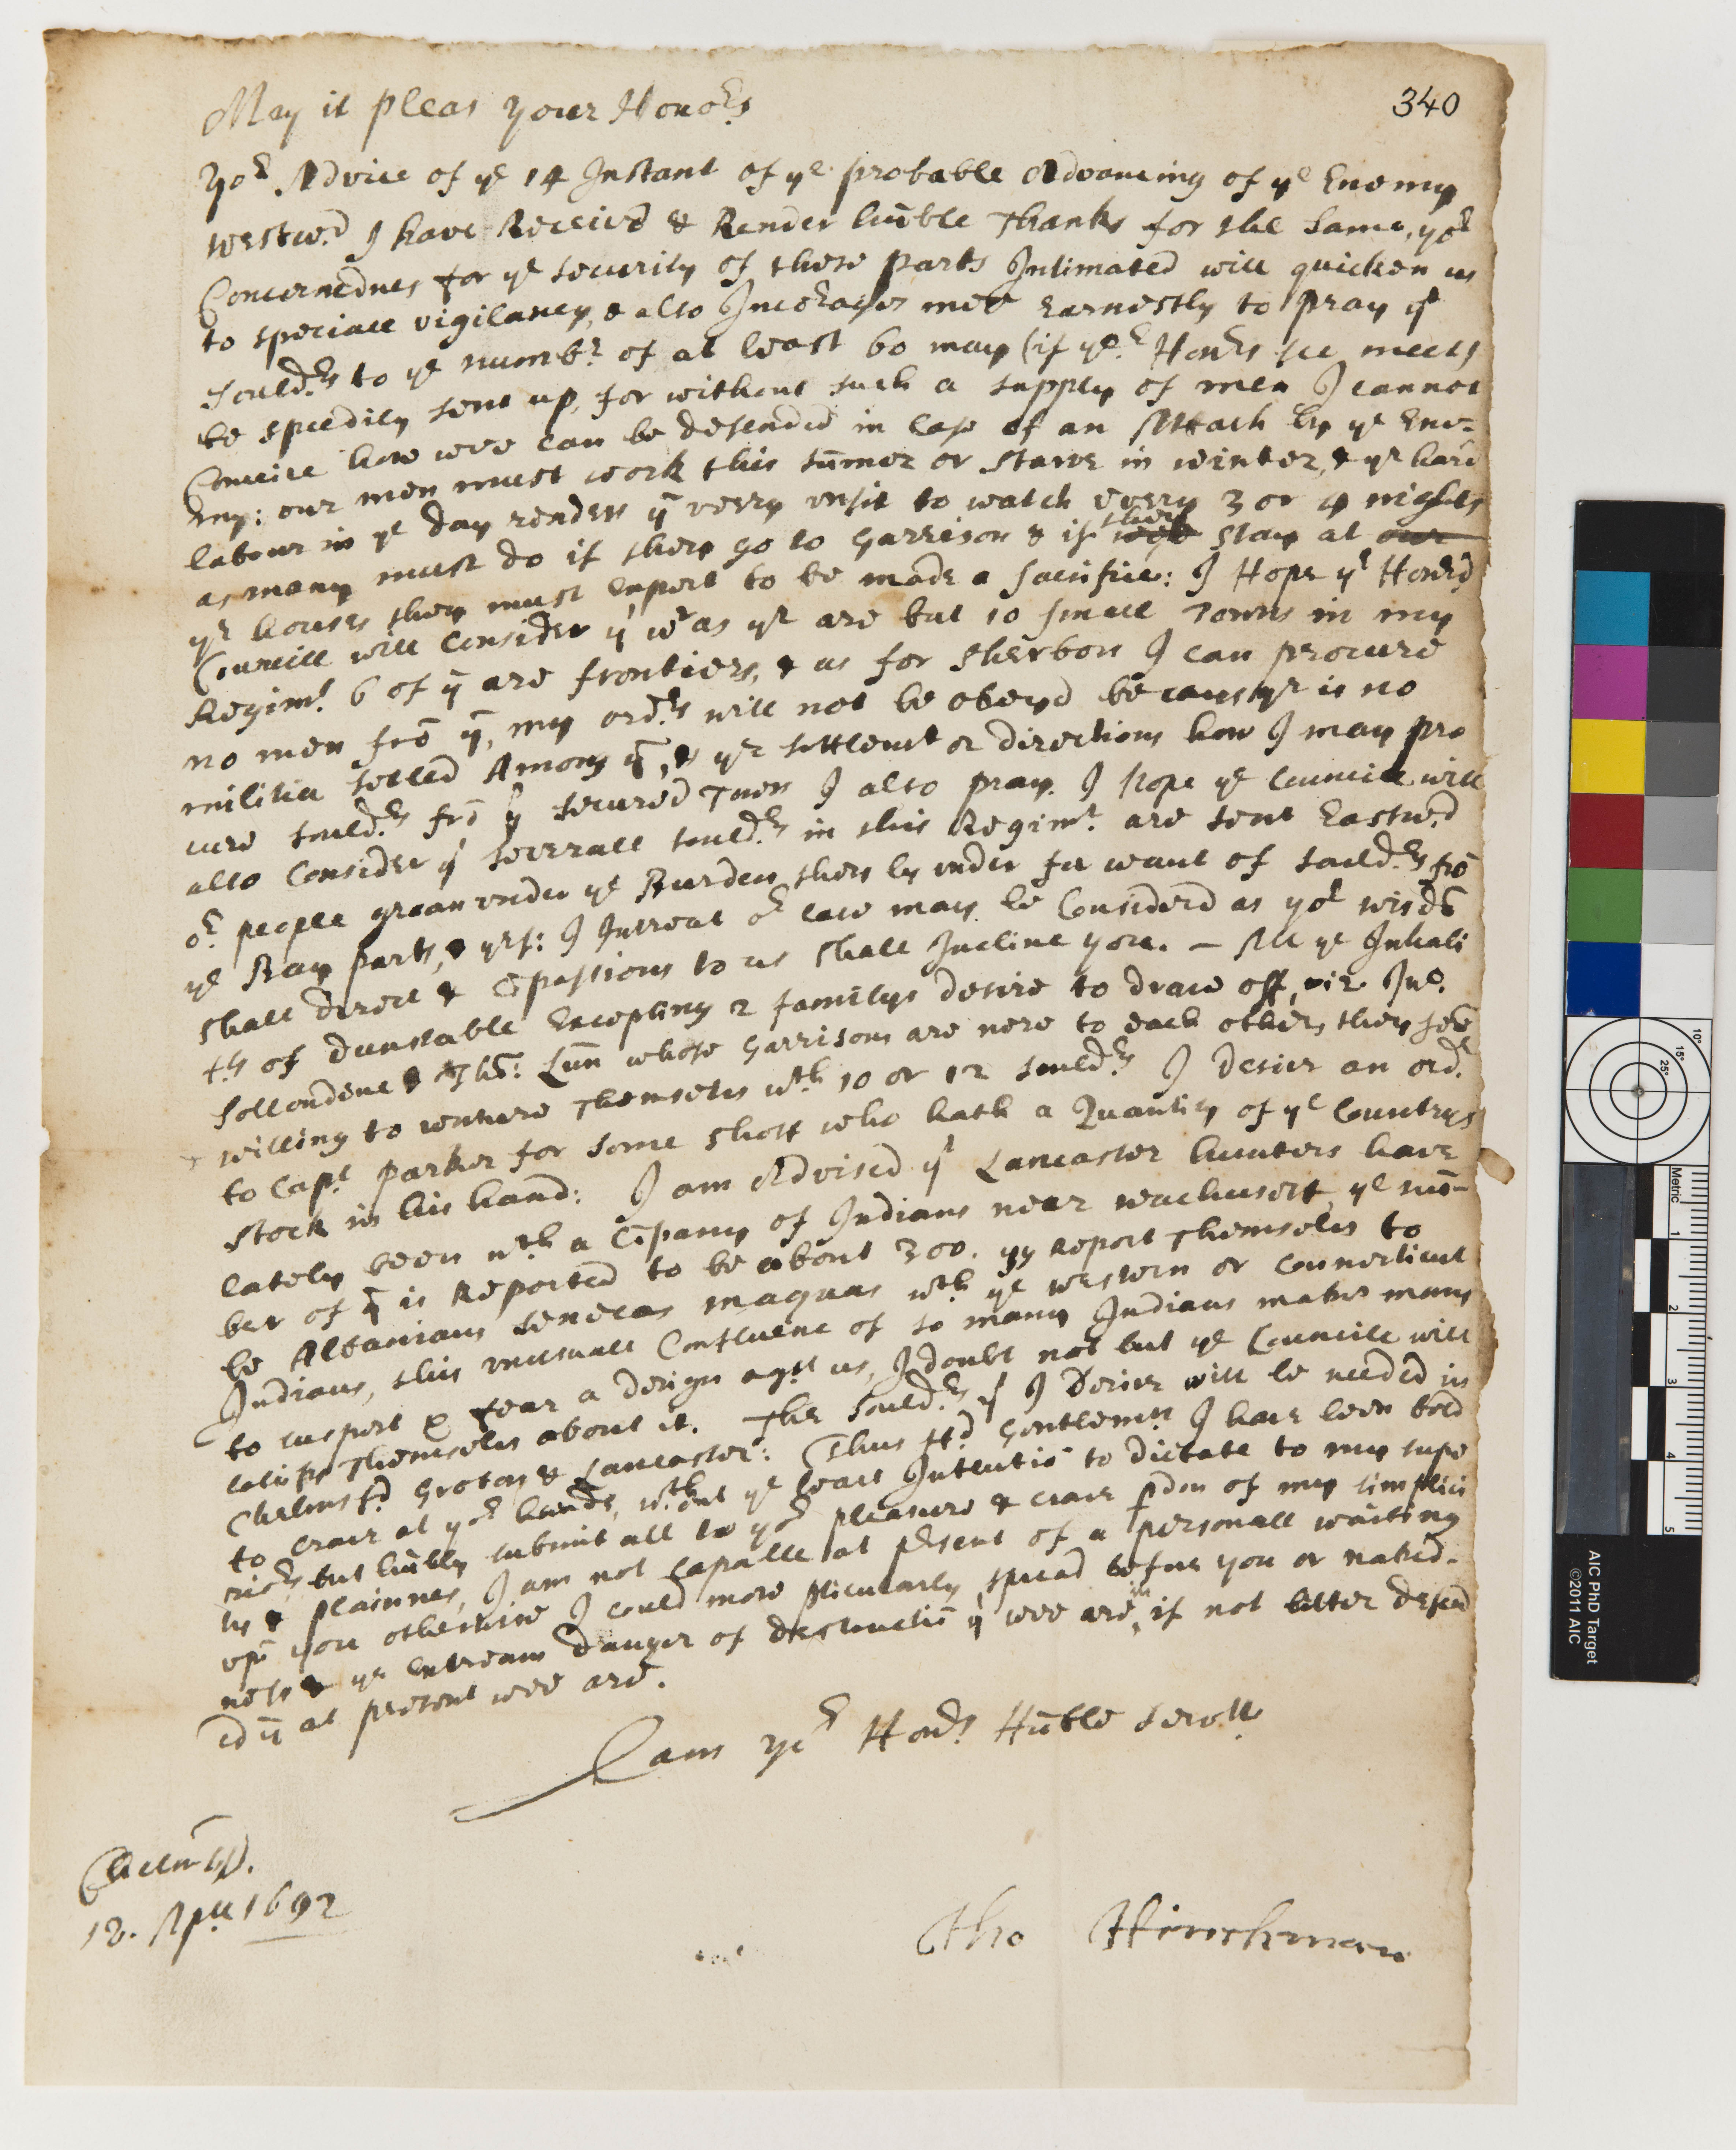 340
May it pleas your Hono:rs
Yor. Advice of ye 14 Instant of ye probable Advancing of ye Enemy
westw:d I have Receiv'd & Render hūble Thanks for the same, yor
Concernednes for ye security of these parts Intimated will quicken us
to speciall vigilancy, & also Incorages mee earnestly to pray yt
sould:rs to ye numbr of at least 60 may (if yor Honrs see meet)
be speedily sent up, for without such a supply of men I cannot
Conceive how wee can be defended in Case of an Attack by ye Ene=
my: our men must work this sūmer or starve in winter, & yr hard
labour in ye day renders ym verry unfit to watch every 3 or 4 nights
as many must do if they go to Garrison & if wee they stay at our
yr houses they must expect to be made a sacrifice: I Hope ye Honrd
Councill will Consider yt wr as yr are but 10 small Towns in my
Regimt. 6 of ym are frontiers, & as for Sherborn I can procure
no men frō ym, my ord:rs will not be obeyd because yr is no
militia setled Among ym, & yr settlemt or directions how I may pro
cure sould:rs frō ye secured Town I also pray. I hope ye Councill will
also Consider yt severall sould:rs in this Regimt. are sent Eastw:d
or people groan under ye Burden they ly under for want of sould:rs frō
ye Bay parts, & yrf: I Intreat or case may be Considerd as yor wisdō
shall direct & Cōpassions to us shall Incline you. – All ye Inhabi
t:ts of Dunstable Excepting 2 familys desire to draw off, viz Jno.
Sollendine & Tho: Lūn whose Garrisons are nere to each other, they seē
willing to venture Themselves wth 10 or 12 sould:rs I Desier an ord:r
to Capt Parker for some shott who hath a Quantity of ye Countrys
stock in his hand: I am Advised yt Lancaster hunters have
lately been wth a Cōpany of Indians near wachusett, ye nūm-
ber of ym is Reported to be about 300. yy report Themselves to
be Albanians senecas maquas wth ye western or Connecticut
Indians, this unusuall Confluenc of so many Indians makes many
to suspect & fear a design agst us, I doubt not but ye Councill will
satisfy Themselves about it. The sould:rs yt I Desier will be needed in
Chelmsf:d Groton & Lancaster: Thus H:d Gentlemen I have been bold
to crave at yor hands, wthout ye least Intentiō to dictate to my supe
riors, but hūbly submit all to yor pleasure & crave pdon of my simplici
ty & plainnes, I am not Capable at prsent of a personall waiting
upō you otherwise I could more pticularly spread before you or naked-
ness & ye Extream danger of destructiō yt wee are in if not better defend
ed yn at present wee are.
I am yor Hon:rs Hūble serv:tt
Chelmsf:d.
18. Apll 1692
Tho Hinchman